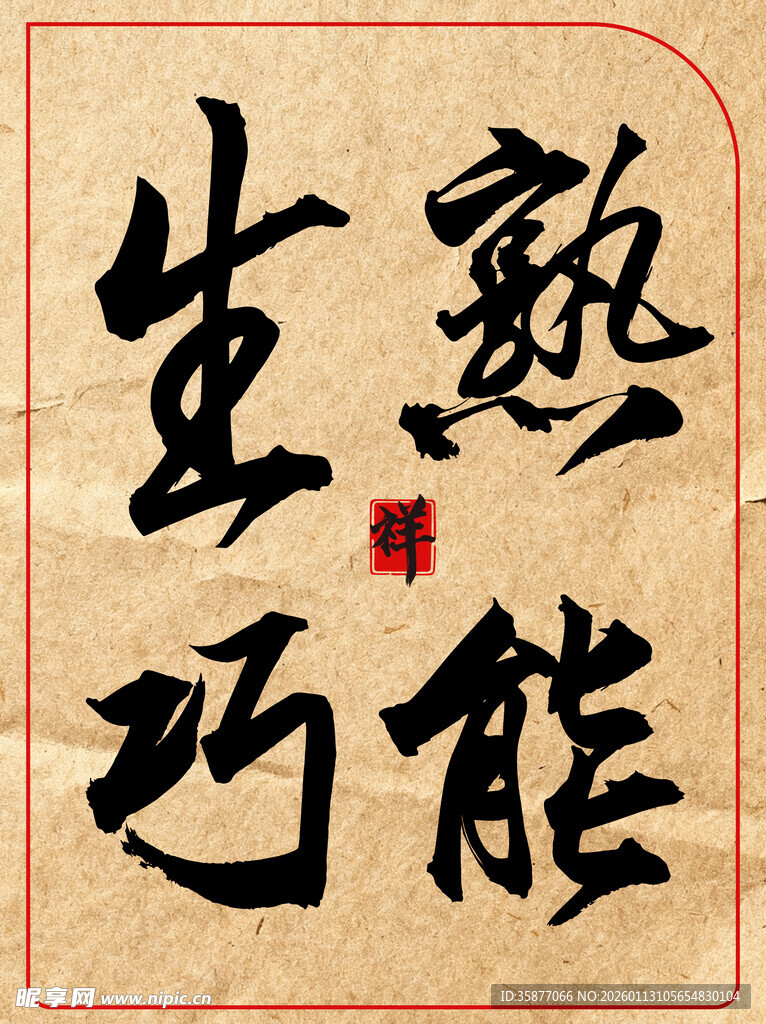 熟能
生巧
祥
昵享网 www.nipic.cn
ID:35877066 NO:20260113105654830104